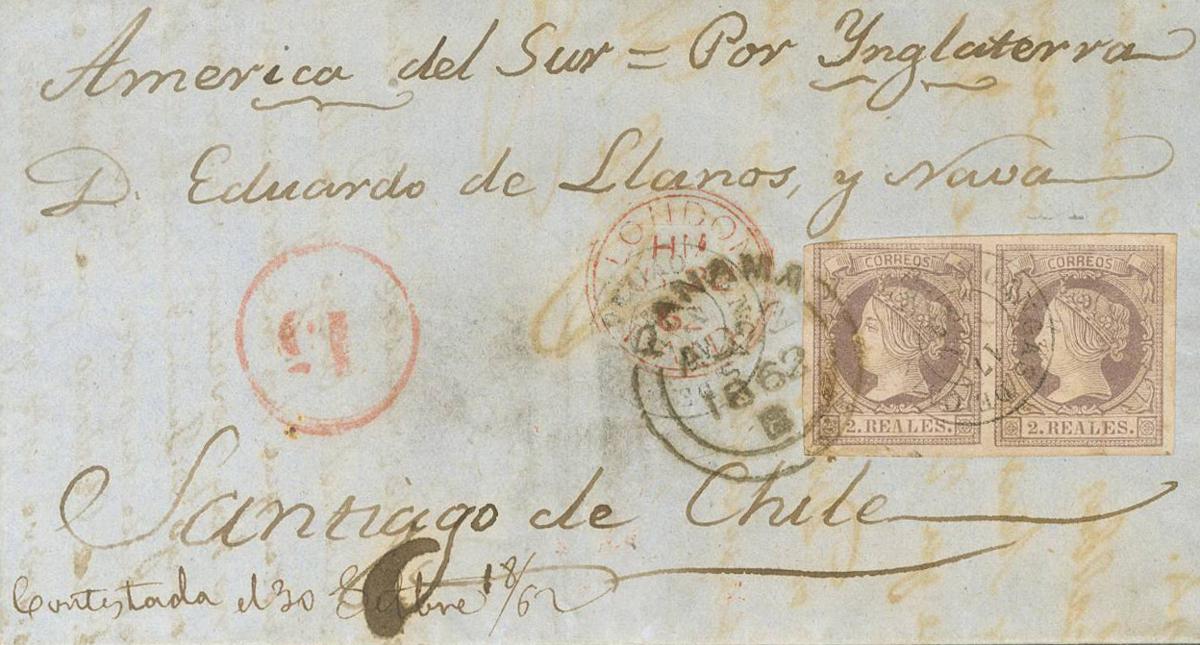 America del Sur = Por Ynglaterra
D. Eduardo de Llanos, y Nava
LONDON
PANAMA
1862
15
CORREOS CORREOS
2. REALES. 2. REALES.
Santiago de Chile
Contestada el 30 18/62